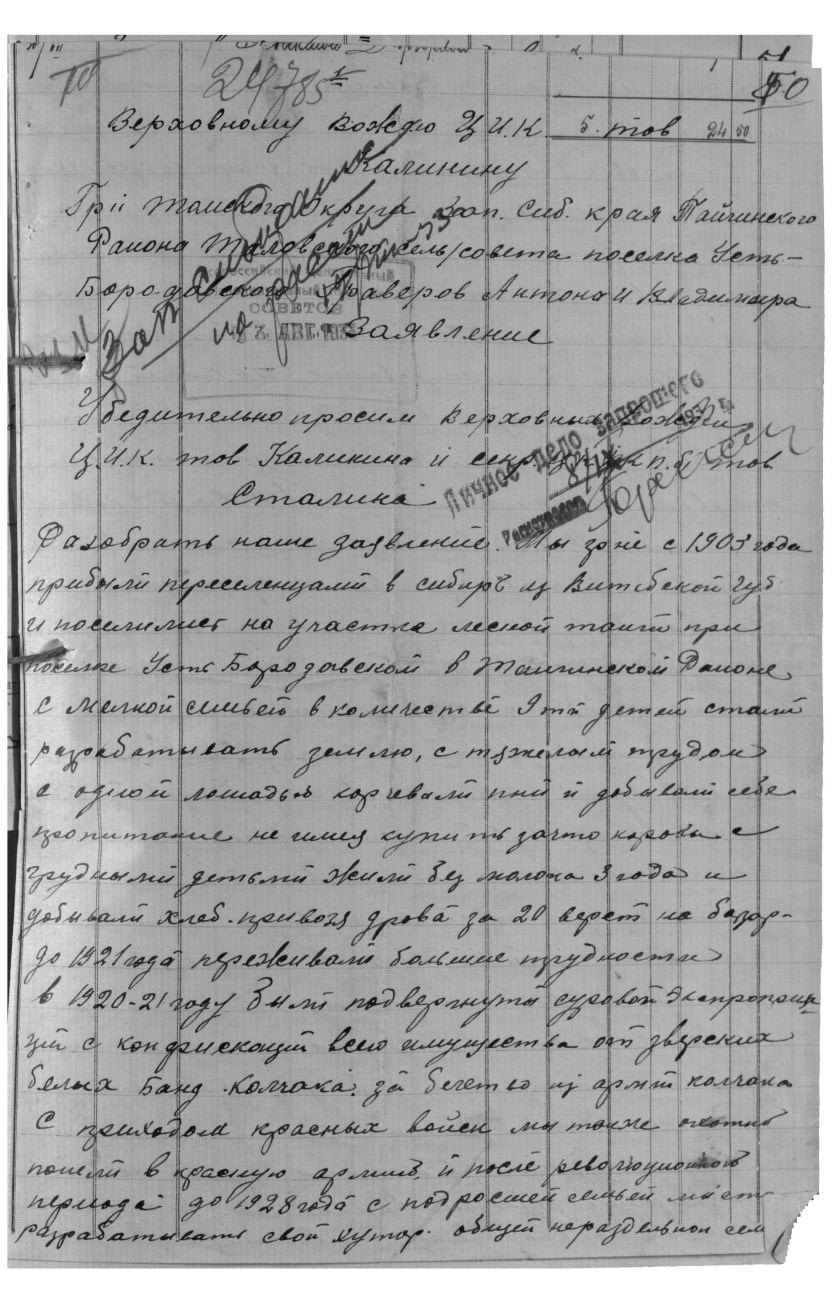 50
24785
Верховному вождю Ц.И.К. 5. тов 24 50
Калинину
Гр Томского Округа Зап. Сиб. края Тайгинского
Района Таловского сельсовета поселка Усть-
Бородавского Антона и Владимира
СОВЕТОВ
Заявление
Личное дело запрошего
Убедительно просим верховных вождей
Ц.И.К. тов Калинина и п.б. тов
Сталина
Разобрать наше заявление. Мы с 1903 года
прибыли переселенцами в сибирь из Витебской губ
и поселились на участке лесной тайги при
поселке Усть Бородавском в Тайгинском Районе
с мелкой семьей в количестве 9ти детей стали
разрабатывать землю, с тяжелым трудом
с одной лошадью корчевали пни и добывали себе
пропитание не имея купить зачто коровы с
грудными детьми жили без молока 3 года и
добывали хлеб привозя дрова за 20 верст на базар-
до 1921 года переживали большие трудности
в 1920-21 году были подвергнуты суровой экспроприа
ции с конфискоций всего имущества от зверских
белых Банд Колчака. за бегство из армии колчака
С приходом красных войск мы тоже охотно
пошли в красную армию, и после революционного
периода до 1928 года с подросшей семьей
разрабатывать свой хутор. общей нераздельной сем